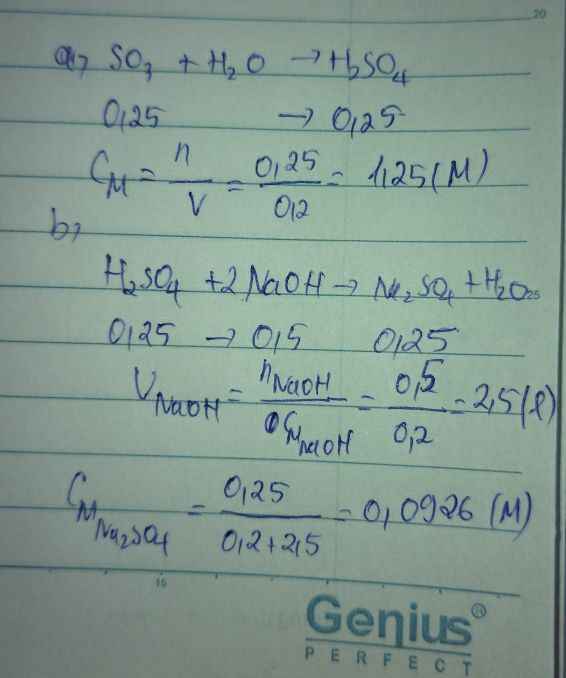 20
a, SO3 + H2O → H2SO4
0,25 → 0,25
CM = n/V = 0,25/0,2 = 1,25 (M)
b,
H2SO4 + 2NaOH → Na2SO4 + H2O
0,25 → 0,5 0,25
VNaOH = nNaOH/CMNaOH = 0,5/0,2 = 2,5 (l)
CMNa2SO4 = 0,25/0,2+2,5 = 0,0926 (M)
10
Genius®
PERFECT